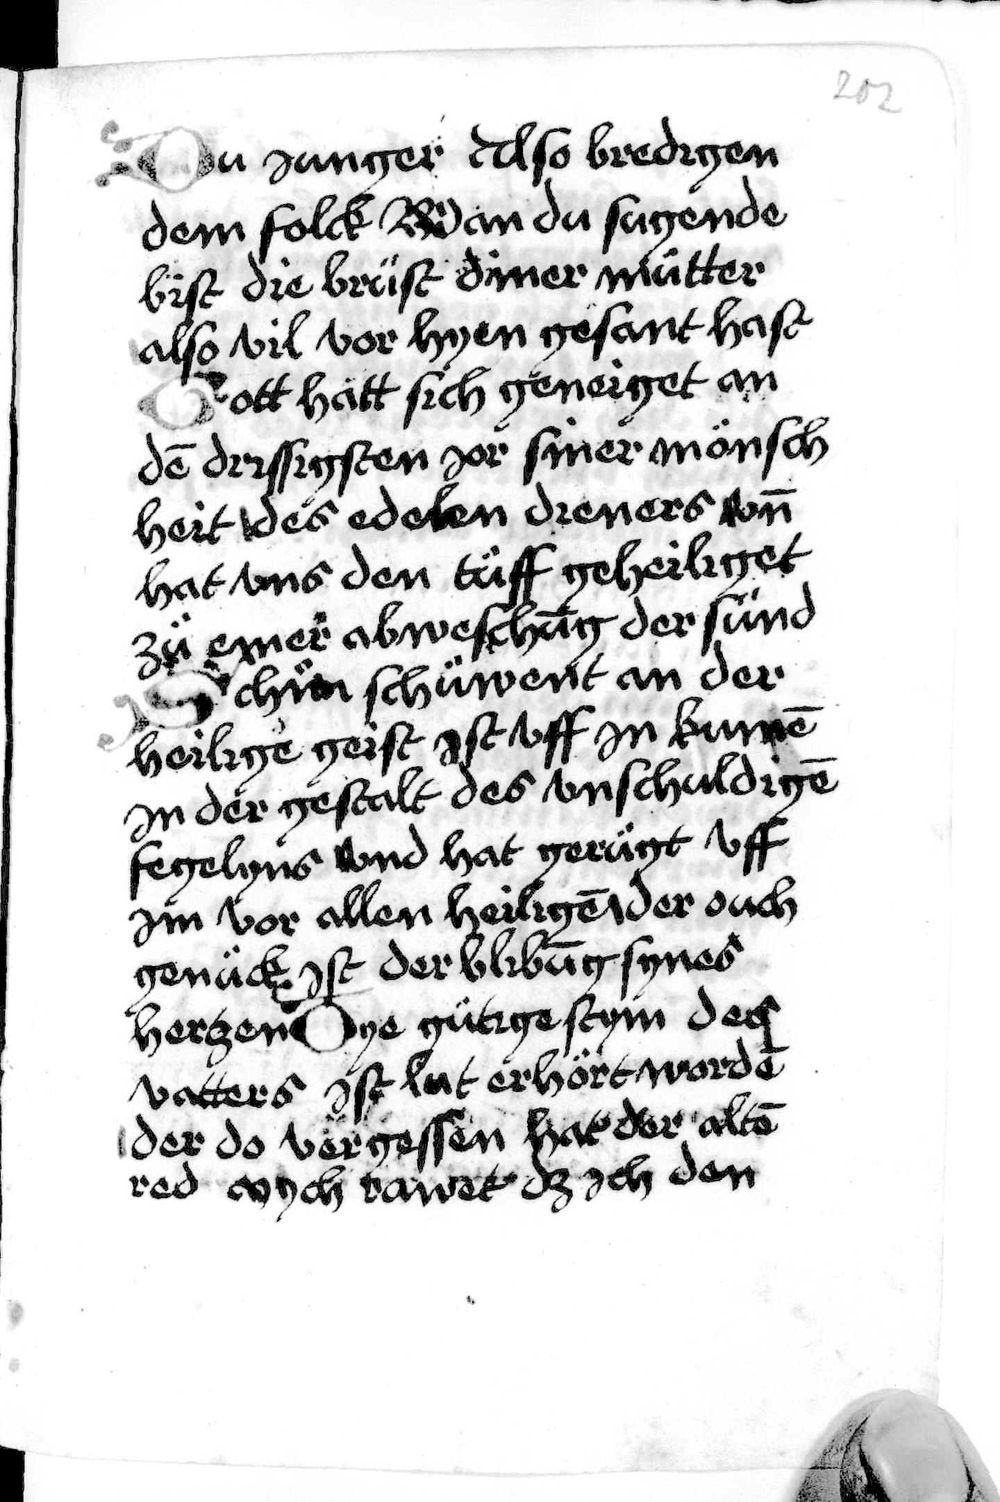 202
Du junger Also bredigen
dem folck Wan du sugende
bist die brüst diner mütter
also vil vor hyen gesant hast
Gott hatt sich geneiget an
dē drissigsten jor siner mönsch
heit des edelen dieners vn̄
hat vns den tüff geheiliget
zü einer abweschūg der sünd
schüwent an der
heilige geist ist vff jn kumē
jn der gestalt des vnschuldigē
fegelyns vnd hat gerügt vff
jm vor allen heiligē der ouch
genück ist der blibūg synes
hertzen Dye gütige stym des
vatters ist lut erhört wordē
der do vergessen hat der altē
red Mych rawet dz ich den